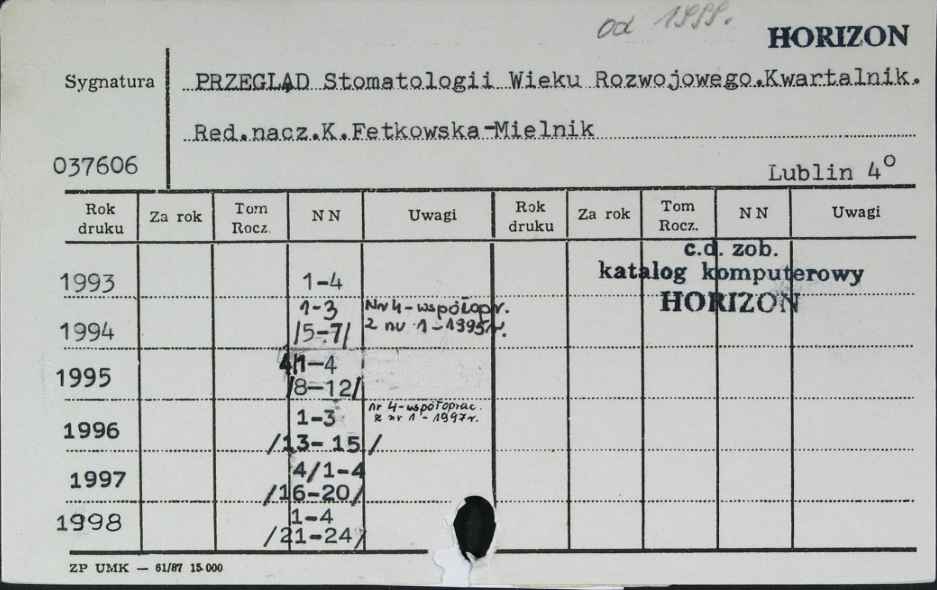 od 1999.
HORIZON
Sygnatura
PRZEGLĄD Stomatologii Wieku Rozwojowego.Kwartalnik.
Red.nacz.K.Fetkowska-Mielnik
037606
Lublin 4°
Rok druku Za rok Tom Rocz. NN Uwagi Rok druku Za rok Tom Rocz. NN Uwagi
c.d. zob.
katalog komputerowy
HORIZON
1993 1-4
1994 1-3 Nr 4-współopr.
/5-7/ z nr 1-1995r.
1995 4/1-4
/8-12/
1996 1-3 nr 4-współoprac.
/13-15/ z nr 1-1997r.
1997 4/1-4
/16-20/
1998 1-4
/21-24/
ZP UMK — 61/87 15.000